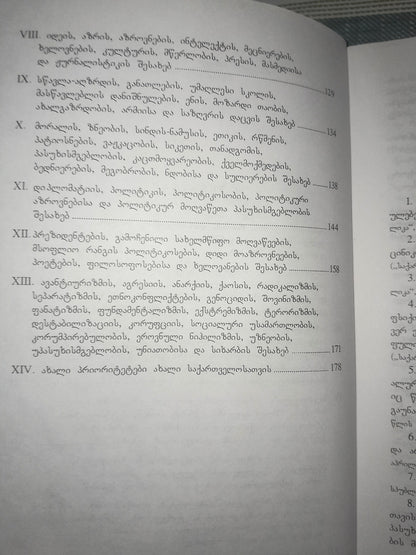 VIII. იდეის, აზრის, აზროვნების, ინტელექტის, მეცნიერების,
ხელოვნების, კულტურის, მწერლობის, პრესის, მასმედიისა
და ჟურნალისტიკის შესახებ ........ 129
IX. სწავლა-აღზრდის, განათლების, უმაღლესი სკოლის,
მასწავლებლის დანიშნულების, ენის, მოზარდი თაობის,
ახალგაზრდობის, არმიისა და საზღვრის დაცვის შესახებ ........ 134
X. მორალის, ზნეობის, სინდის-ნამუსის, ეთიკის, რწმენის,
პატიოსნების, ვაჟკაცობის, სიკეთის, თანადგომის,
პასუხისმგებლობის, კაცთმოყვარეობის, ქველმოქმედების,
ბედნიერების, მეგობრობის, ნდობისა და სულიერების შესახებ ........ 138
XI. დიპლომატიის, პოლიტიკის, პოლიტიკოსობის, პოლიტიკური
აზროვნებისა და პოლიტიკურ მოღვაწეთა პასუხისმგებლობის
შესახებ ........ 144
XII. პრეზიდენტების, გამოჩენილი სახელმწიფო მოღვაწეების,
მსოფლიო რანგის პოლიტიკოსების, დიდი მოაზროვნეების,
პოეტების, ფილოსოფოსებისა და ხელოვანების შესახებ ........ 158
XIII. ავანტიურიზმის, აგრესიის, ანარქიის, ქაოსის, რადიკალიზმის,
სეპარატიზმის, ეთნოკონფლიქტების, გენოციდის, შოვინიზმის,
ფანატიზმის, ფუნდამენტალიზმის, ექსტრემიზმის, ტერორიზმის,
დესტაბილიზაციის, კორუფციის, სოციალური უსამართლობის,
კორუმპირებულობის, ეროვნული ნიჰილიზმის, უზნეობის,
უპასუხისმგებლობის, უნიათობისა და სიხარბის შესახებ ........ 171
XIV. ახალი პრიორიტეტები ახალი საქართველოსათვის ........ 178
1.
2.
3.
4.
5.
6.
და
7.
8.